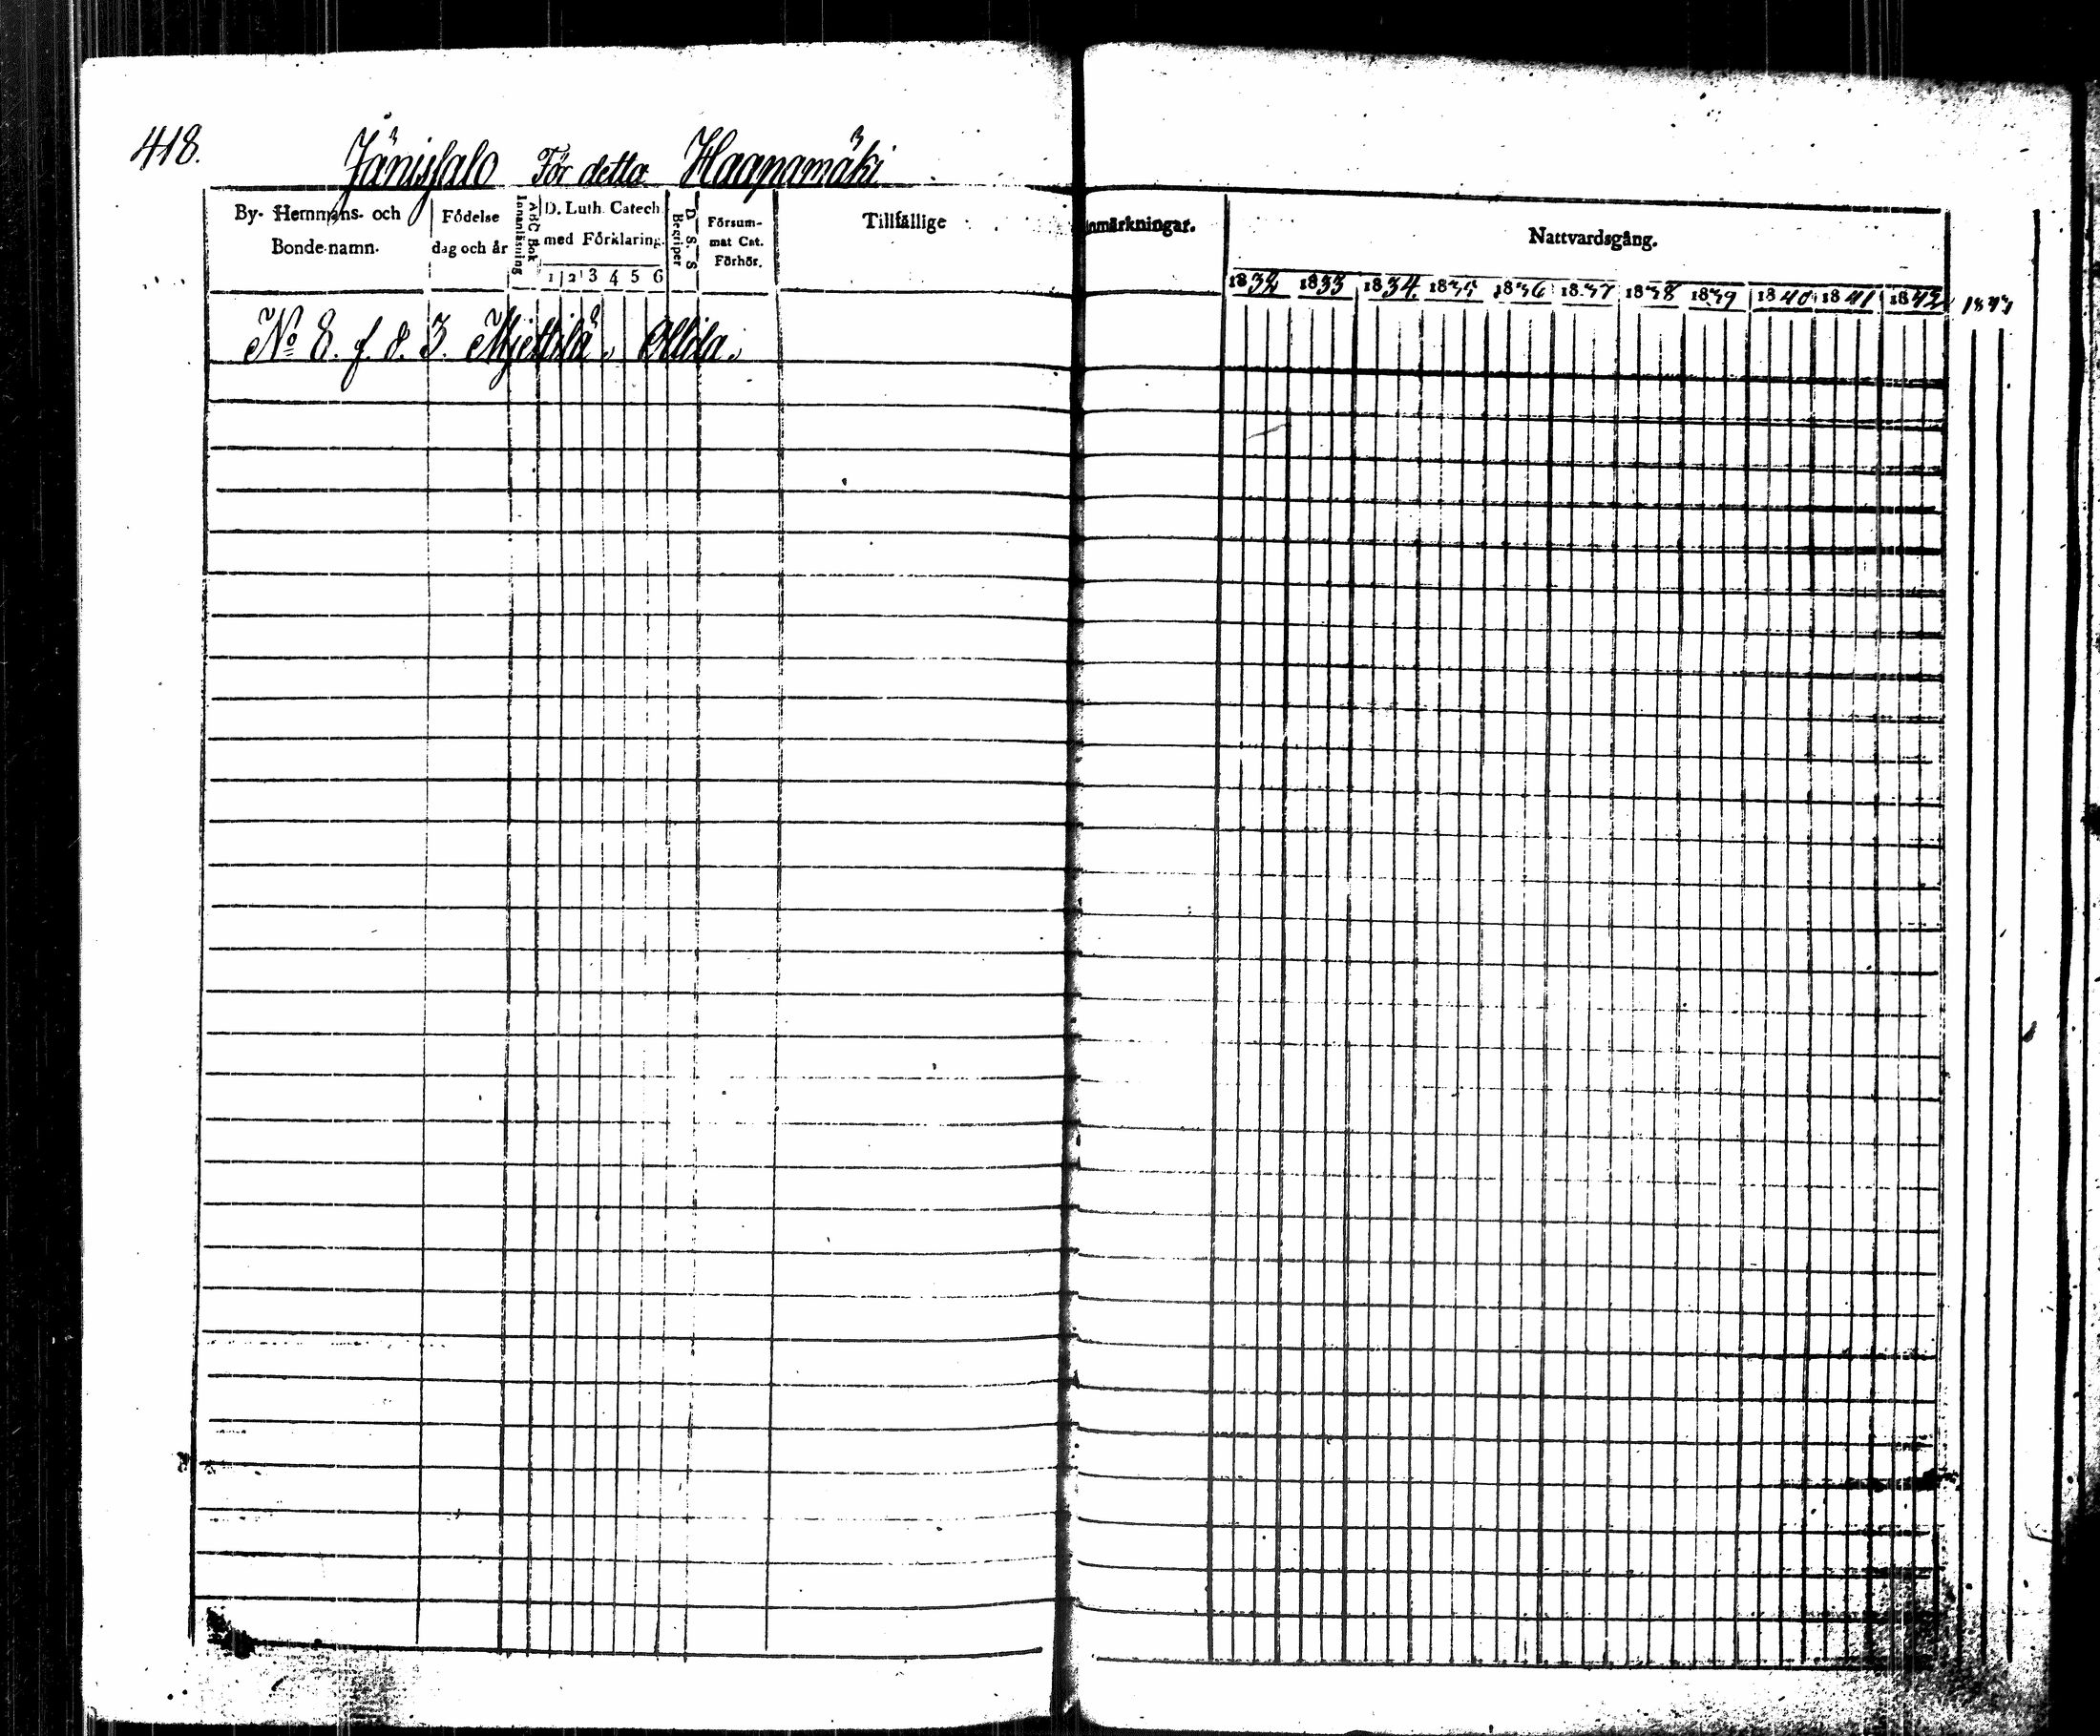 418.
Jänissalo För detta Haapamäki
By- Hemmans- och Bonde-namn.
Födelse dag och år
ABC Bok Innanläsning
D. Luth. Catech. med Förklaring.
1 2 3 4 5 6
D. S. S. Begriper
Försum-mat Cat. Förhör.
Tillfällige
nmärkningar.
Nattvardsgång.
1832 1833 1834. 1835 1836 1837 1838 1839 1840 1841 1842 1843
No 8. f. d. 3. Mjettilä, Ollila,